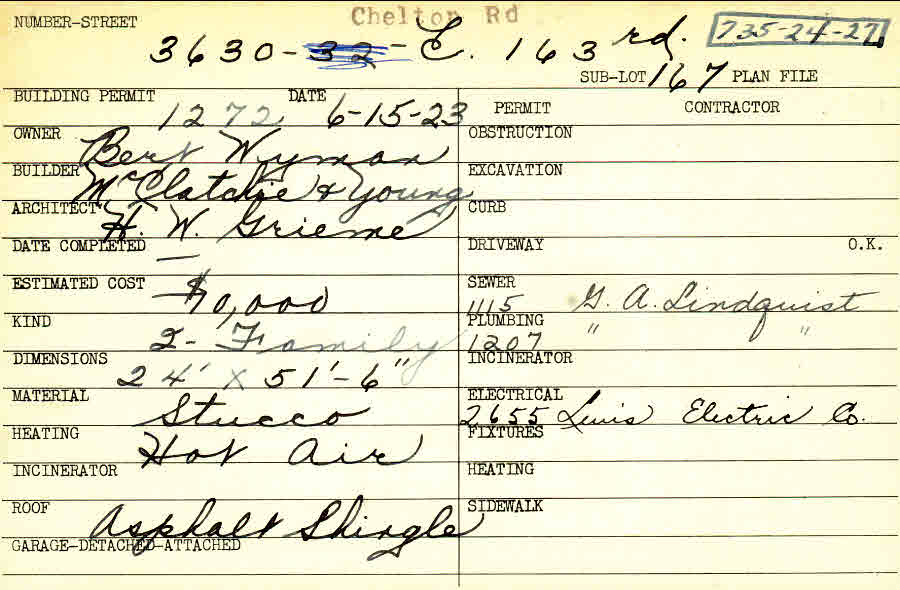 NUMBER-STREET
Chelton Rd
3630-32-E. 163 rd.
735-24-27
SUB-LOT 167 PLAN FILE
BUILDING PERMIT 1272 DATE 6-15-23
OWNER Bert Wyman
BUILDER McClatchie & Young
ARCHITECT H. W. Grieme
DATE COMPLETED —
ESTIMATED COST $10,000
KIND 2-Family
DIMENSIONS 24' x 51'-6"
MATERIAL Stucco
HEATING Hot Air
INCINERATOR
ROOF Asphalt Shingle
GARAGE-DETACHED-ATTACHED
PERMIT CONTRACTOR
OBSTRUCTION
EXCAVATION
CURB
DRIVEWAY O.K.
SEWER
1115 G. A. Lindquist
PLUMBING
1207 " "
INCINERATOR
ELECTRICAL
2655 Lewis Electric Co.
FIXTURES
HEATING
SIDEWALK